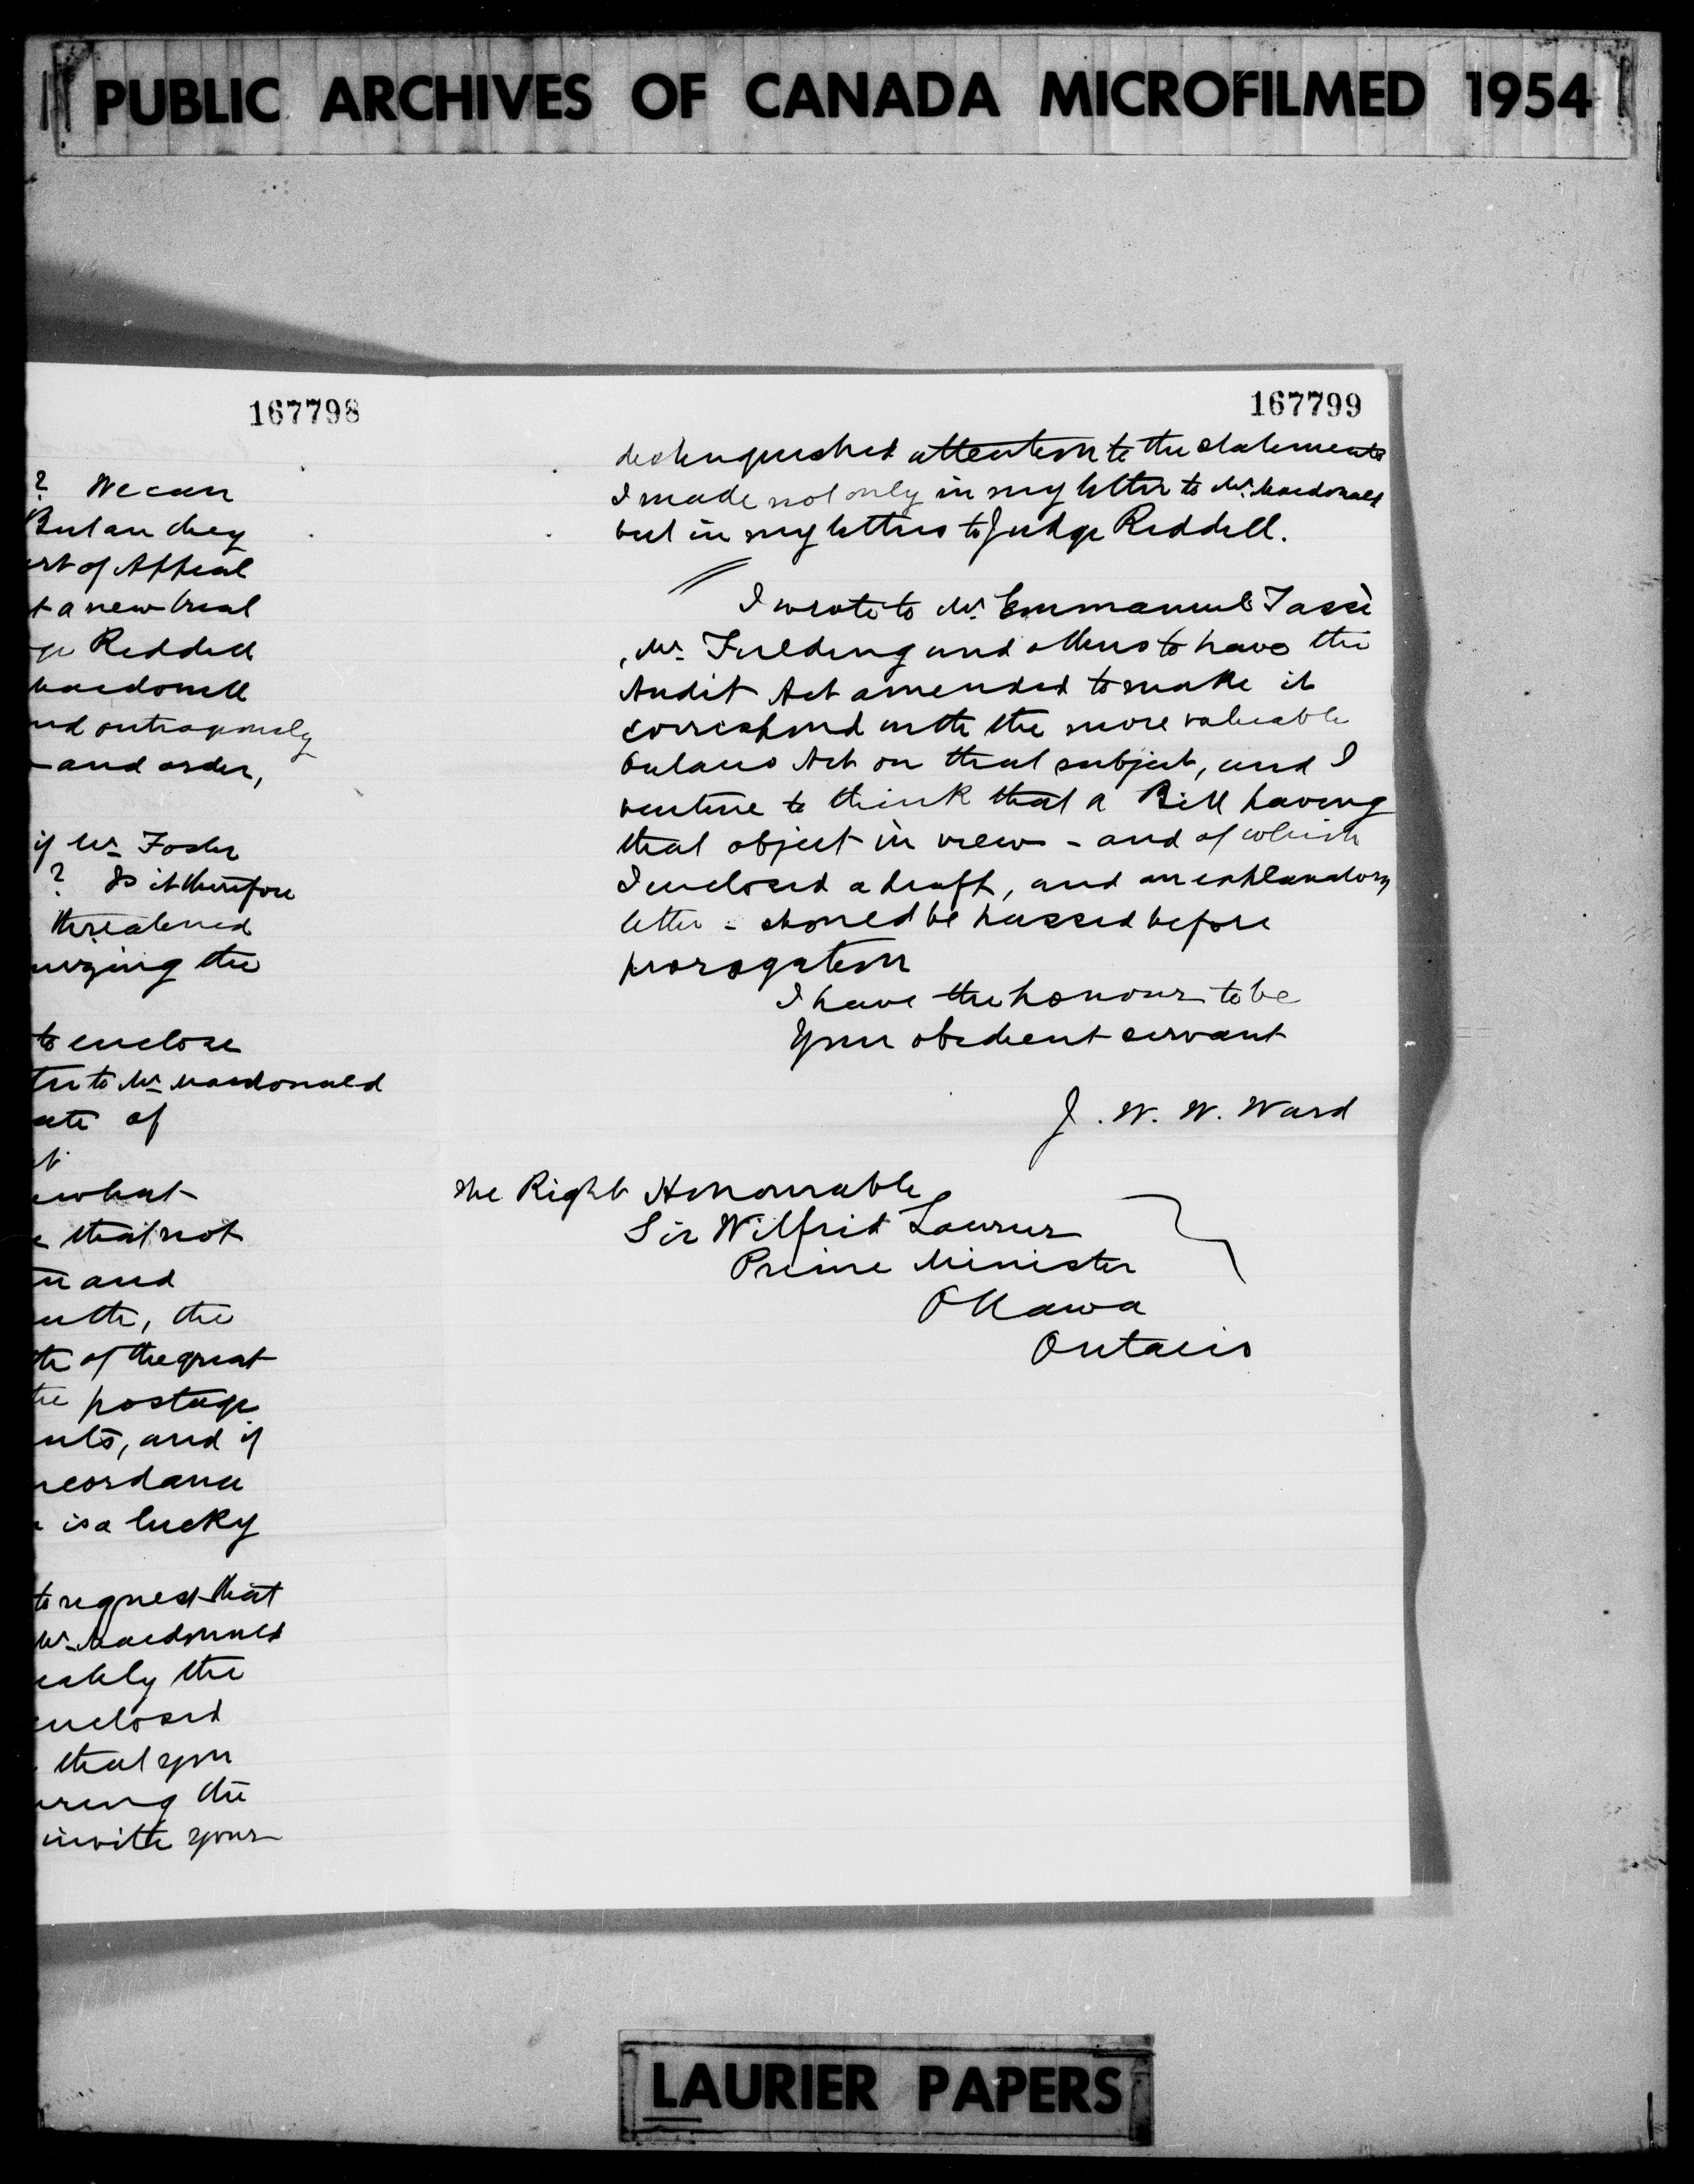 PUBLIC ARCHIVES OF CANADA MICROFILMED 1954
167798
? We can
rt of Appeal
t a new trial
ge Riddell
Macdonell
nd outrageously
and order,
if Mr Foster
? Is it therefore
threatened
the
to enclose
ter to Mr Macdonald
ate of
what
that not
and
the
te of the great
the postage
nts, and if
ccordance
is a lucky
to request that
Mr Macdonald
the
enclosed
that you
ring the
invite your
167799
distinguished attention to the statements
I made not only in my letter to Mr. Macdonald
but in my letters to Judge Riddell.
I wrote to Mr. Emmanuel Tassè
, Mr. Fielding and others to have the
Audit Act amended to make it
correspond with the more valuable
Ontario Act on that subject, and I
venture to think that a Bill having
that object in view - and of which
I enclosed a draft, and an explanatory
letter - should be passed before
prorogation
I have the honour to be
Your obedient servant
J. W. W. Ward
The Right Honourable
Sir Wilfrid Laurier
Prime Minister
Ottawa
Ontario
LAURIER PAPERS